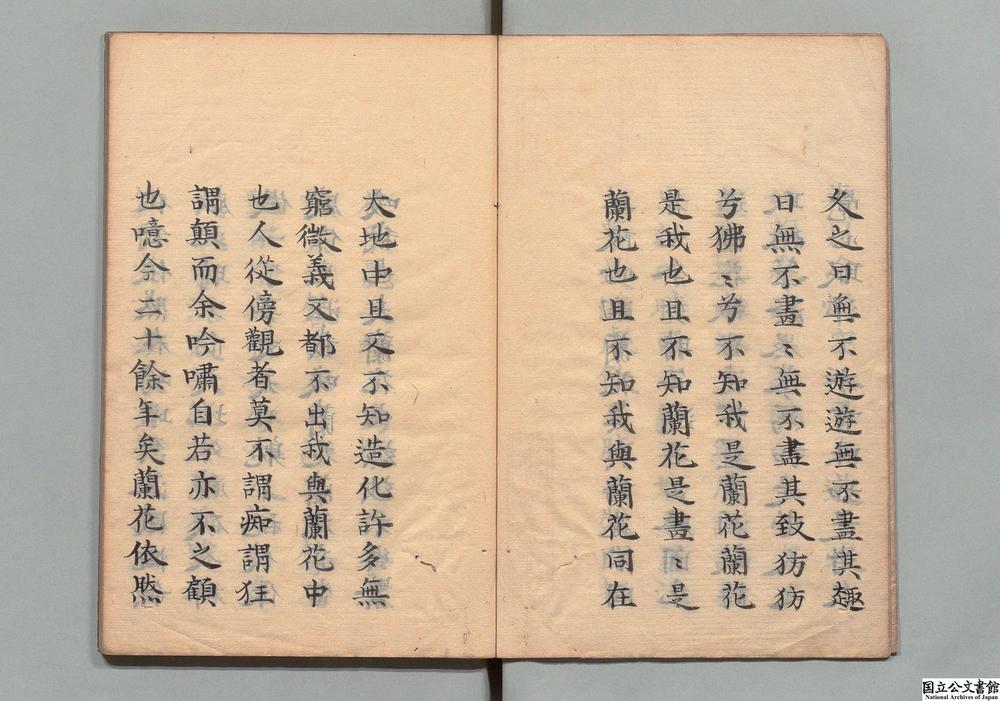 久之日無不遊遊無不盡其趣
日無不畫〻無不盡其致彷彷
兮狒〻兮不知我是蘭花蘭花
是我也且不知蘭花是畫〻是
蘭花也且不知我與蘭花同在
大地中且又不知造化許多無
窮微義又都不出我與蘭花中
也人從傍觀者莫不謂痴謂狂
謂顛而余吟嘯自若亦不之顧
也噫今二十餘年矣蘭花依然
国立公文書館
National Archives of Japan